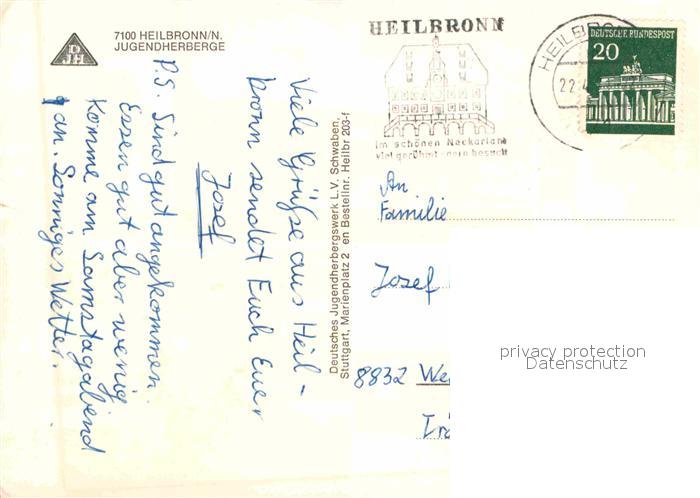 DJH
7100 HEILBRONN/N.
JUGENDHERBERGE
Viele Grüße aus Heil-
bronn sendet Euch Euer
Josef
P.S. Sind gut angekommen.
Essen gut aber wenig
Komme am Samstagabend
an. Sonniges Wetter.
Deutsches Jugendherbergswerk L.V. Schwaben,
Stuttgart, Marienplatz 2 en Bestellnr. Heilbr 203-f
HEILBRONN
im schönen Neckarland
viel gerühmt - gern besucht
HEILBRON
22.4
DEUTSCHE BUNDESPOST
20
An
Familie
Josef
8832 We
privacy protection
Datenschutz